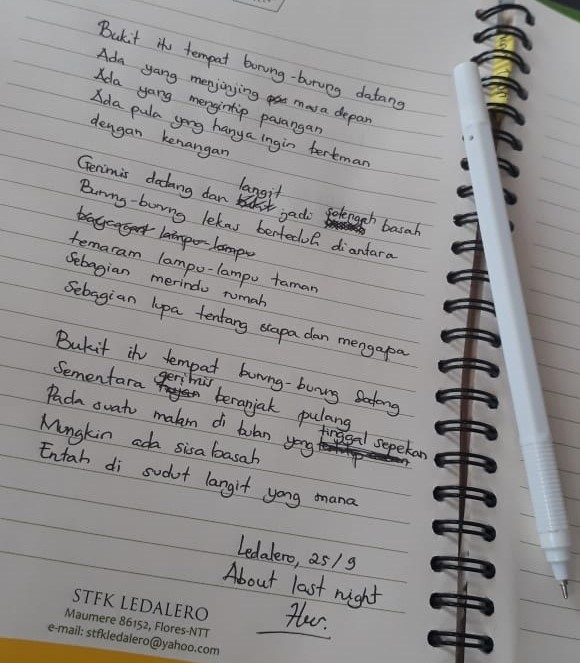 Bukit itu tempat burung-burung datang
Ada yang menjunjing masa depan
Ada yang mengintip pasangan
Ada pula yang hanya ingin berteman
dengan kenangan
Gerimis datang dan langit jadi setengah basah
Burung-burung lekas berteduh diantara
temaram lampu-lampu taman
Sebagian merindu rumah
Sebagian lupa tentang siapa dan mengapa
Bukit itu tempat burung-burung datang
Sementara gerimis beranjak pulang
Pada suatu malam di bulan yang tinggal sepekan
Mungkin ada sisa basah
Entah di sudut langit yang mana
Ledalero, 25/9
About last night
STFK LEDALERO
Maumere 86152, Flores-NTT
e-mail: stfkledalero@yahoo.com